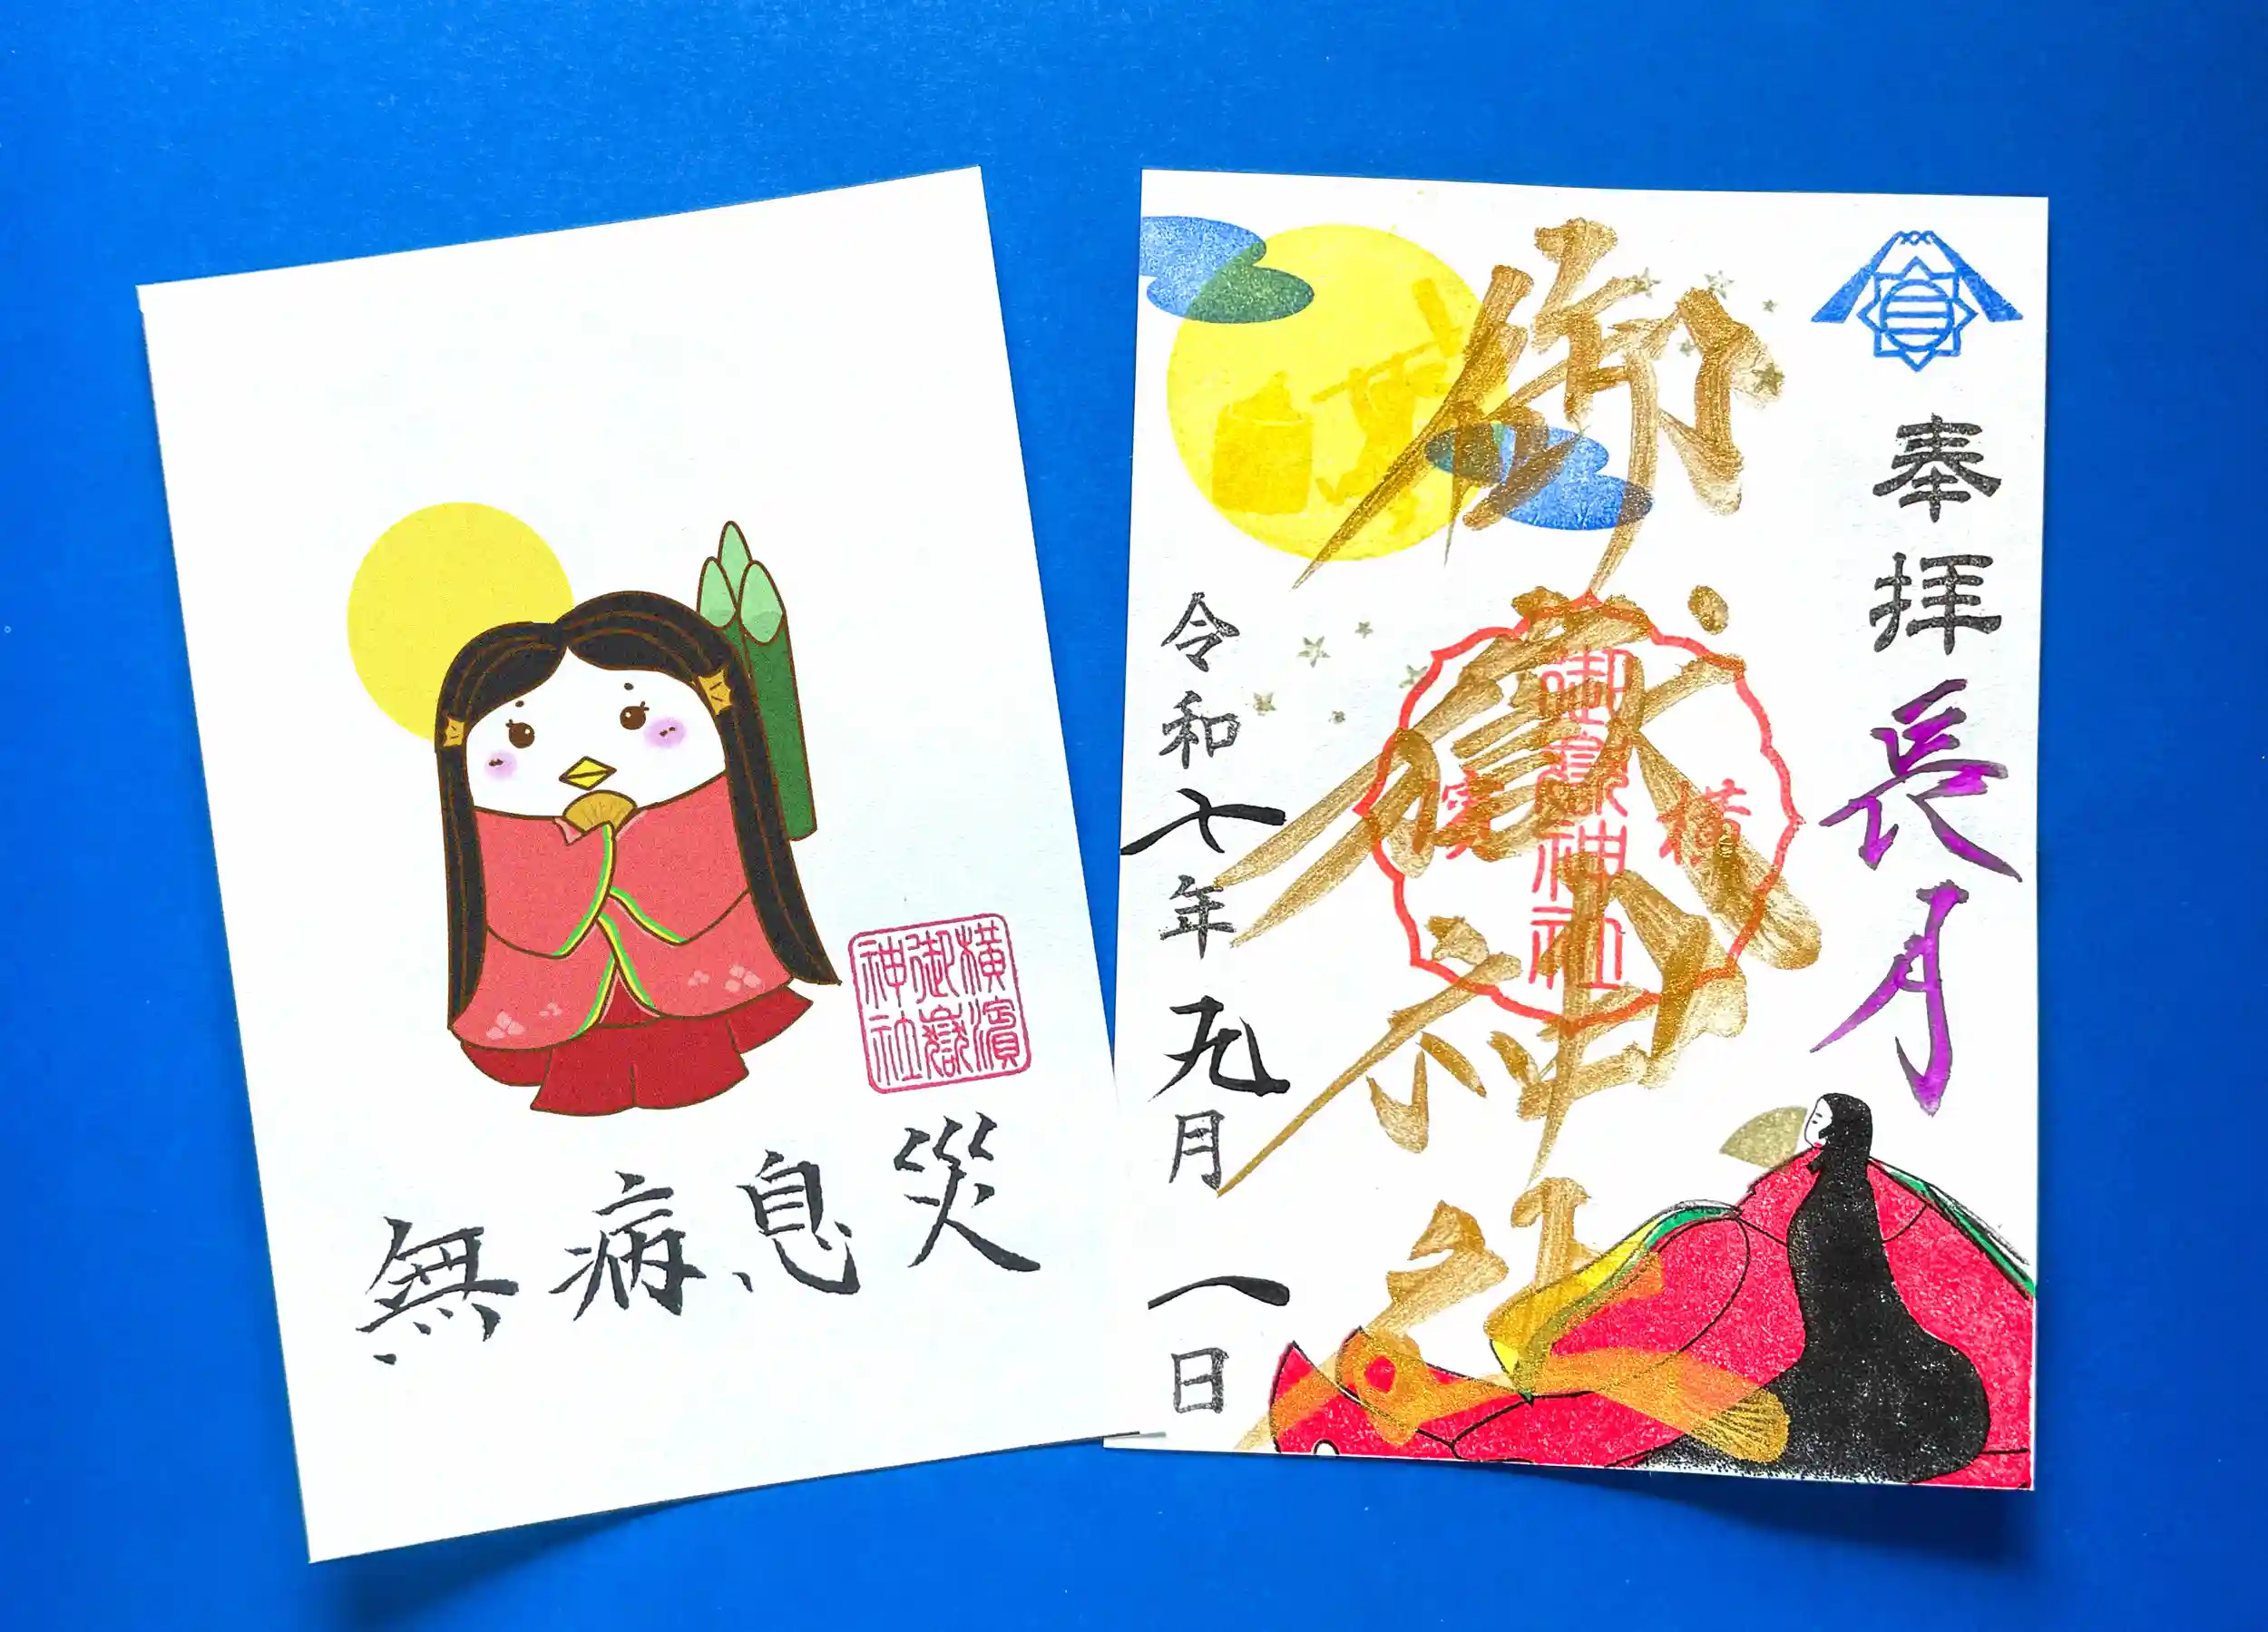 横濱
御嶽
神社
無病息災
奉拝
長月
御嶽神社
横濱
御嶽神社
令和七年九月一日